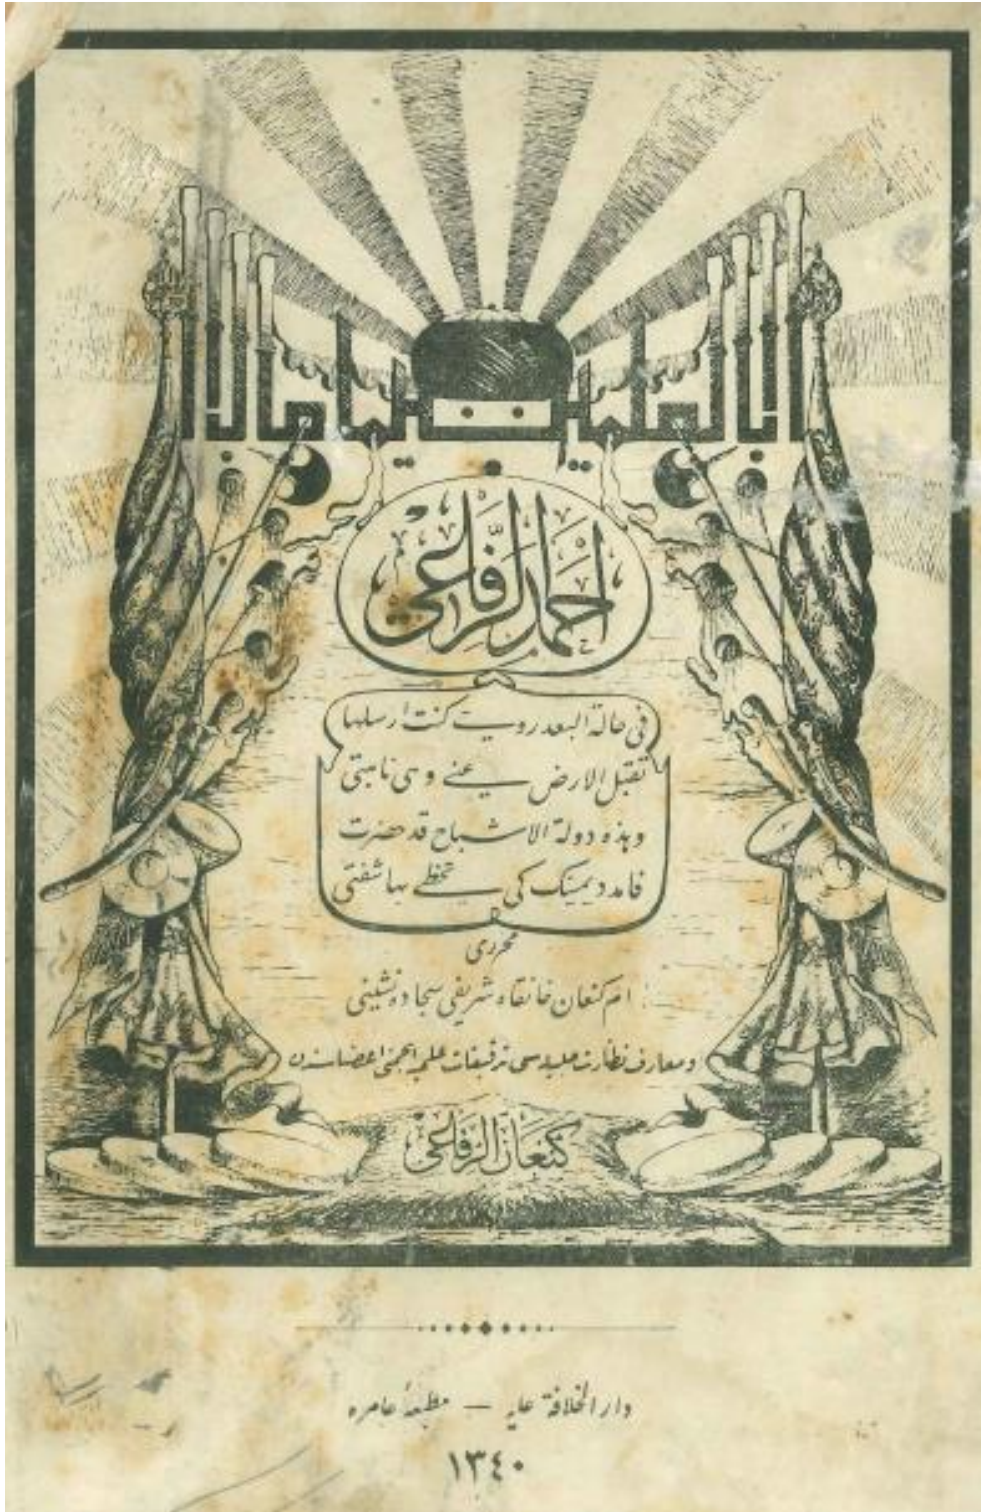 ابا العلمين
احمد الرفاعي
في حالة البعد روحي كنت ارسلها
تقبل الارض عني وهي نائبتي
وهذه دولة الاشباح قد حضرت
فامدد يمينك كي تحظى بها شفتي
محرری
ام كنعان خانقاه شريفی سجاده نشينی
و معارف نظارت جليله سی تدقيقات علميه انجمنی اعضاسندن
كنعان الرفاعي
دار الخلافة عليه — مطبعهٔ عامره
١٣٤٠